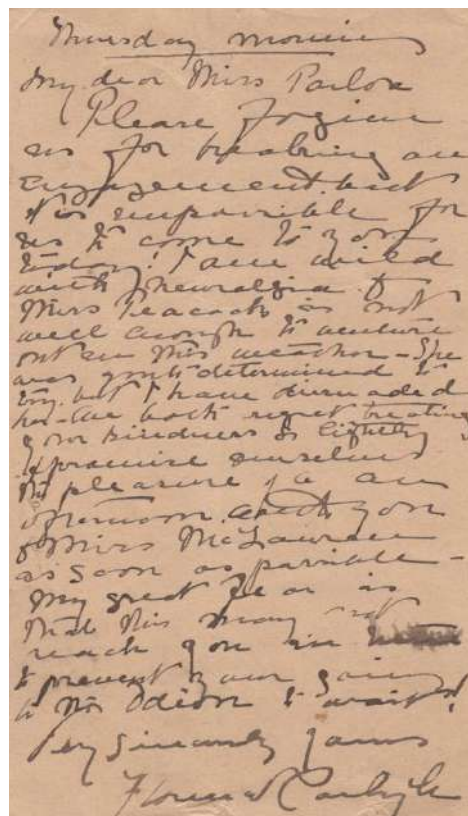 Thursday morning
My dear Miss Parlow
Please forgive
us for breaking an
engagement but
it is impossible for
us to come to you
today! I am wild
with neuralgia &
Miss Peacock is not
well enough to venture
out in this weather - She
was quite determined to
try but I have dissuaded
her - We both regret treating
your kindness so lightly
& promise ourselves
the pleasure of an
afternoon with you
& Miss
as soon as possible -
My great fear is
that this may not
reach you in
to prevent your going
to the Odeon to wait!
Very Sincerely yours
Florence Carlyle